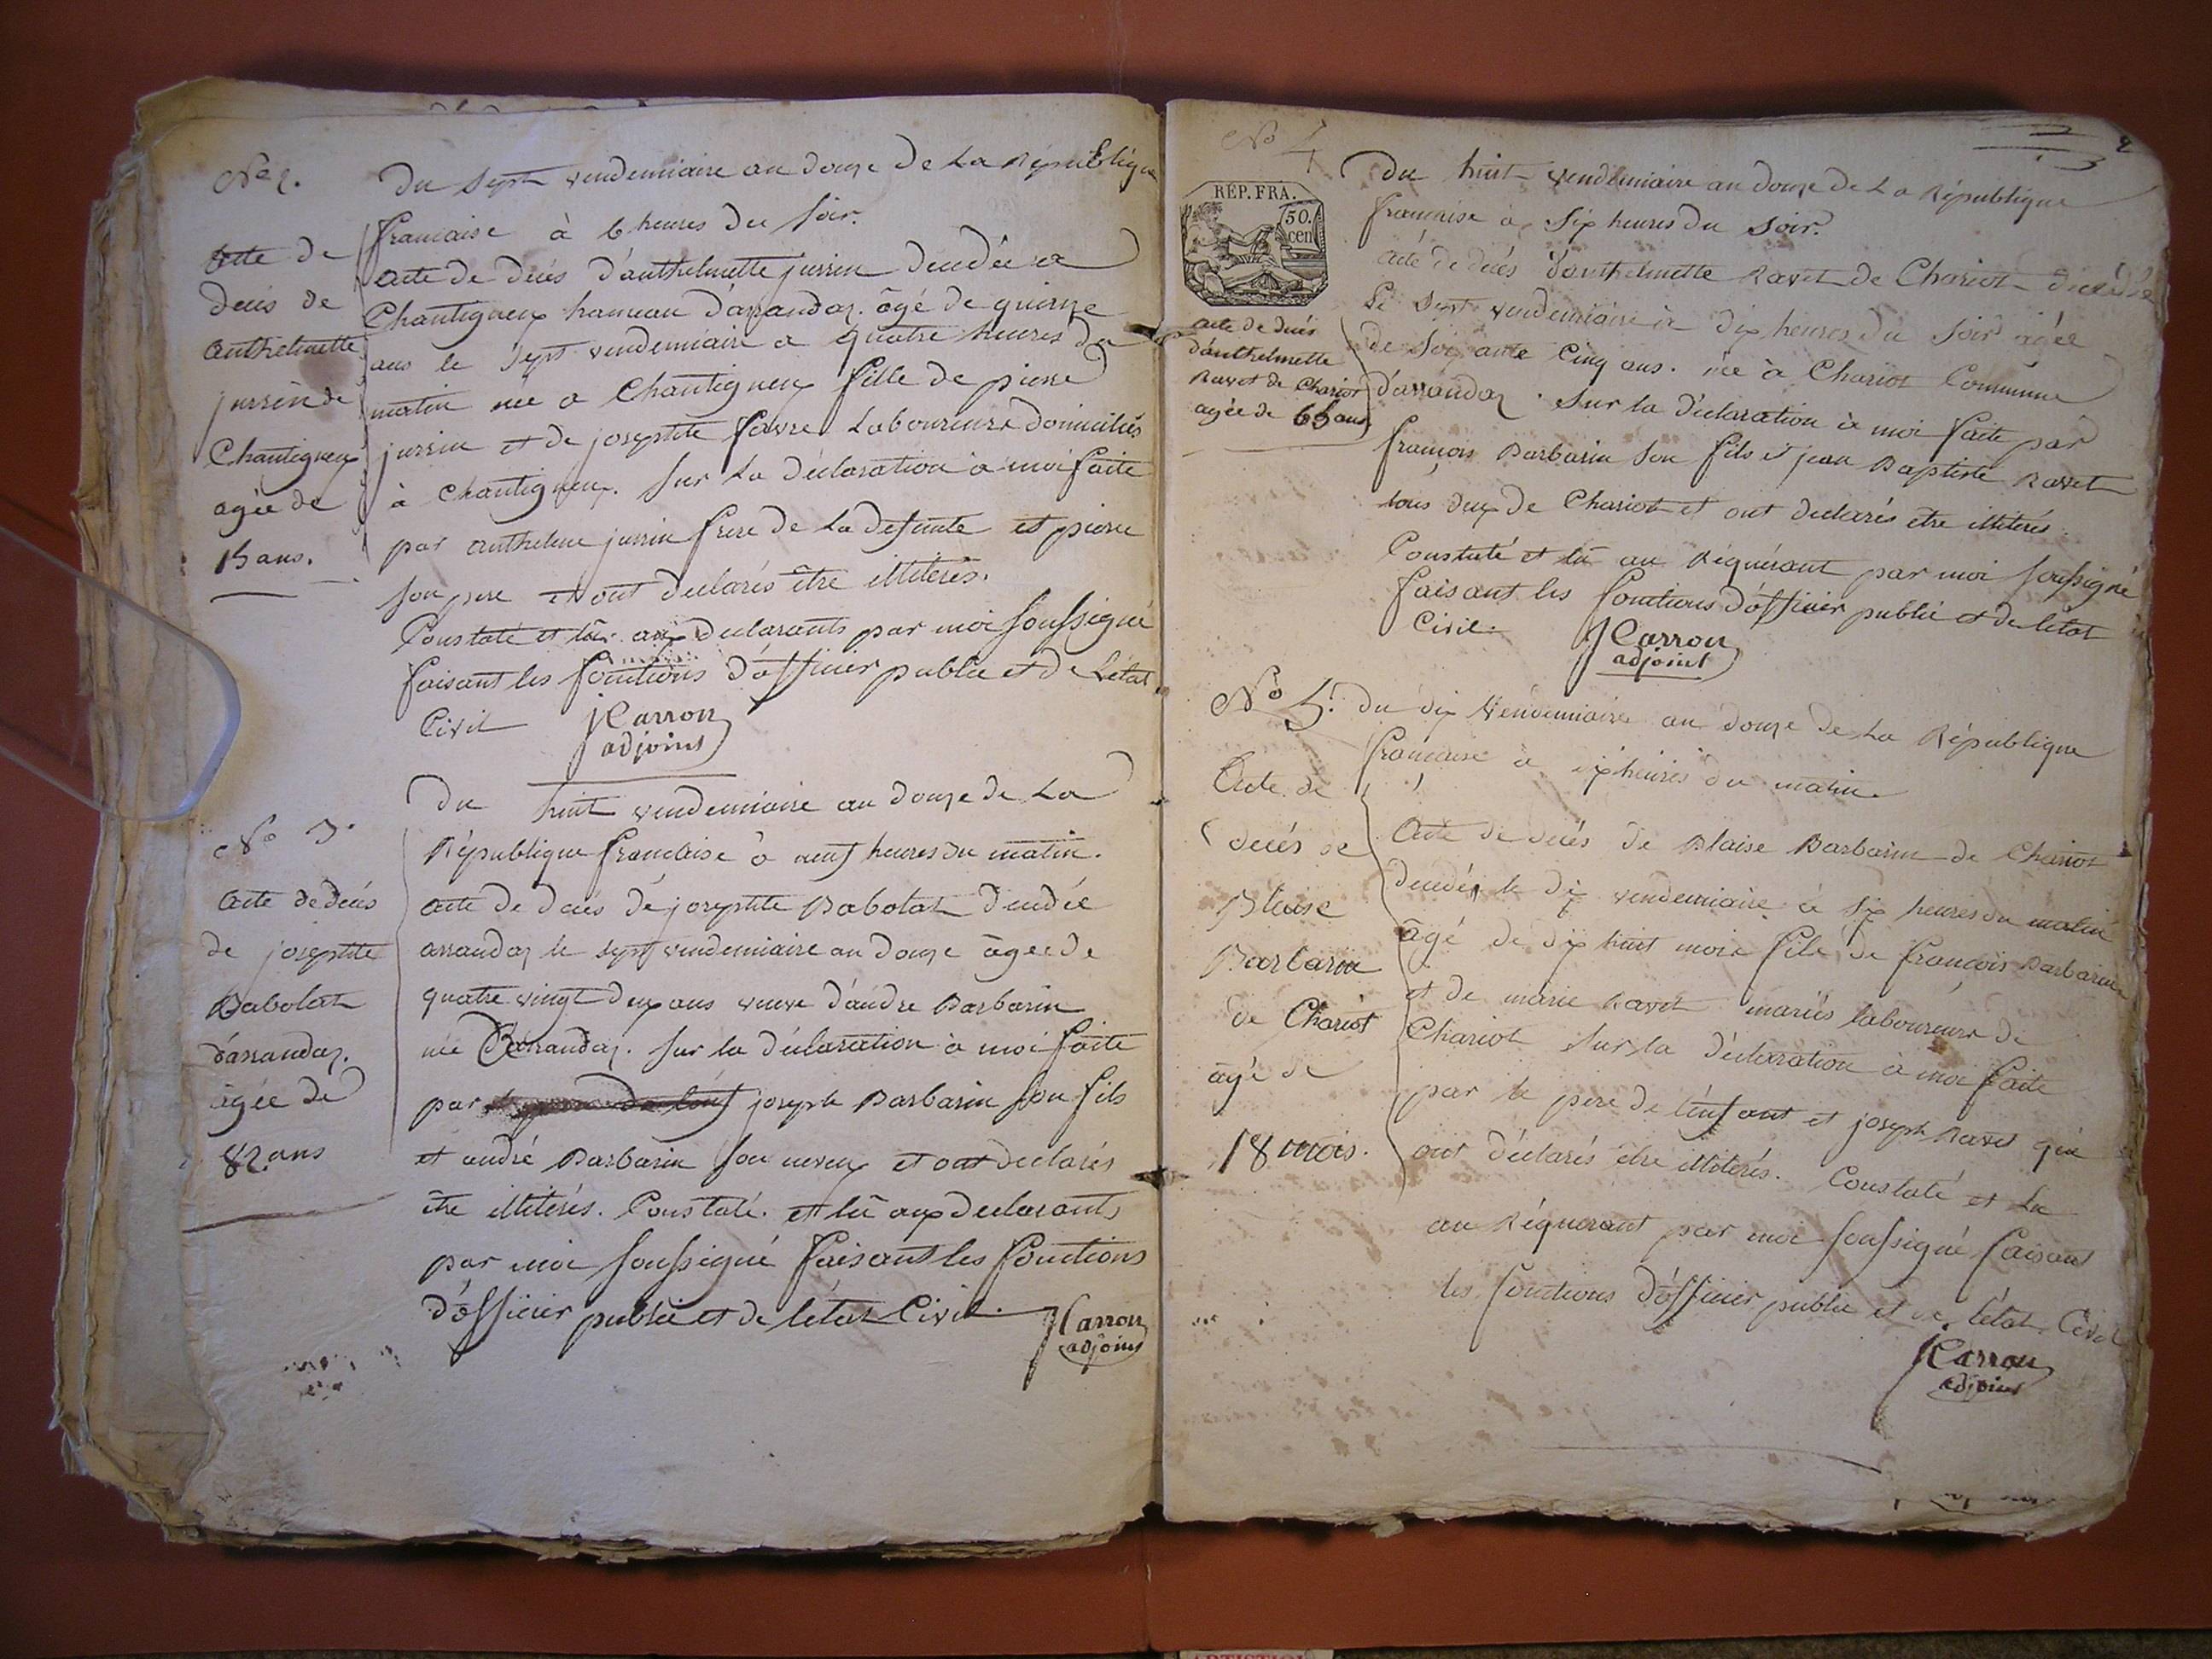 No 2.
Du Sept vendemiaire an douze de La République
francaise à 6 heures du soir.
Acte de
décés de
Anthelmette
jussin de
Chantigneu
agée de
15 ans.
acte de décés d'anthelmette jussin décédée a
Chantigneux hameau d'arrandaz. âgé de quinze
ans le sept vendemiaire a quatre heures du
matin née a Chantigneux fille de pierre
jussin et de josephte favre Laboureurs domiciliés
à chantigneux. sur La déclaration à moi faite
par anthelme jussin frere de La defunte et pierre
son pere et ont declarés être illiterés.
Constaté et lû aux declarants par moi soussigné
faisant les fonctions d'officier public et de L'état
Civil JCarron
adjoint
No 3.
Du huit vendemiaire an douze de La
République francaise à neuf heures du matin.
acte de décés
de josephte
Babolat
d'arrandaz.
agée de
82 ans
acte de décés de josephte Babolat décédée
arrandaz le sept vendemiaire an douze âgee de
quatre vingt deux ans veuve d'andré Barbarin
née d'arrandaz. sur la déclaration à moi faite
par joseph Barbarin son fils
et andré Barbarin son neveux et ont declarés
être illiterés. Constaté. et lû aux declarants
par moi soussigné faisant les fonctions
d'officier public et de l'état Civil. JCarron
adjoint
2
No 4
RÉP. FRA.
50.
cen
Du huit vendemiaire an douze de La République
francaise à six heures du soir.
acte de décés
d'anthelmette
Ravet de Chariot
agée de 65 ans
acte de décés d'anthelmette Ravet de Chariot décédée
Le sept vendemiaire à dix heures du soir agée
de soixante Cinq ans. née à Chariot Commune
d'arrandaz. sur la déclaration à moi faite par
françois Barbarin son fils et jean Baptiste Ravet
tous deux de Chariot et ont declarés être illiterés.
Constaté et lû au Réquérant par moi soussigné
faisant les fonctions d'officier public et de l'état
Civil. JCarron
adjoint
No 5.
du dix vendemiaire an douze de La République
francaise à dix heures du matin.
Acte de
décés de
Blaise
Barbarin
de Chariot
âgé de
18 mois.
Acte de décés de Blaise Barbarin de Chariot
décedé le dix vendemiaire à six heures du matin
âgé de dix huit mois fils de françois Barbarin
et de marie Ravet mariés laboureurs de
Chariot sur la déclaration à moi faite
par le pere de l'enfant et joseph Ravet qui
ont déclarés être illiterés. Constaté et lu
au Réquérant par moi soussigné faisant
les fonctions d'officier public et de l'état Civil
JCarron
adjoint